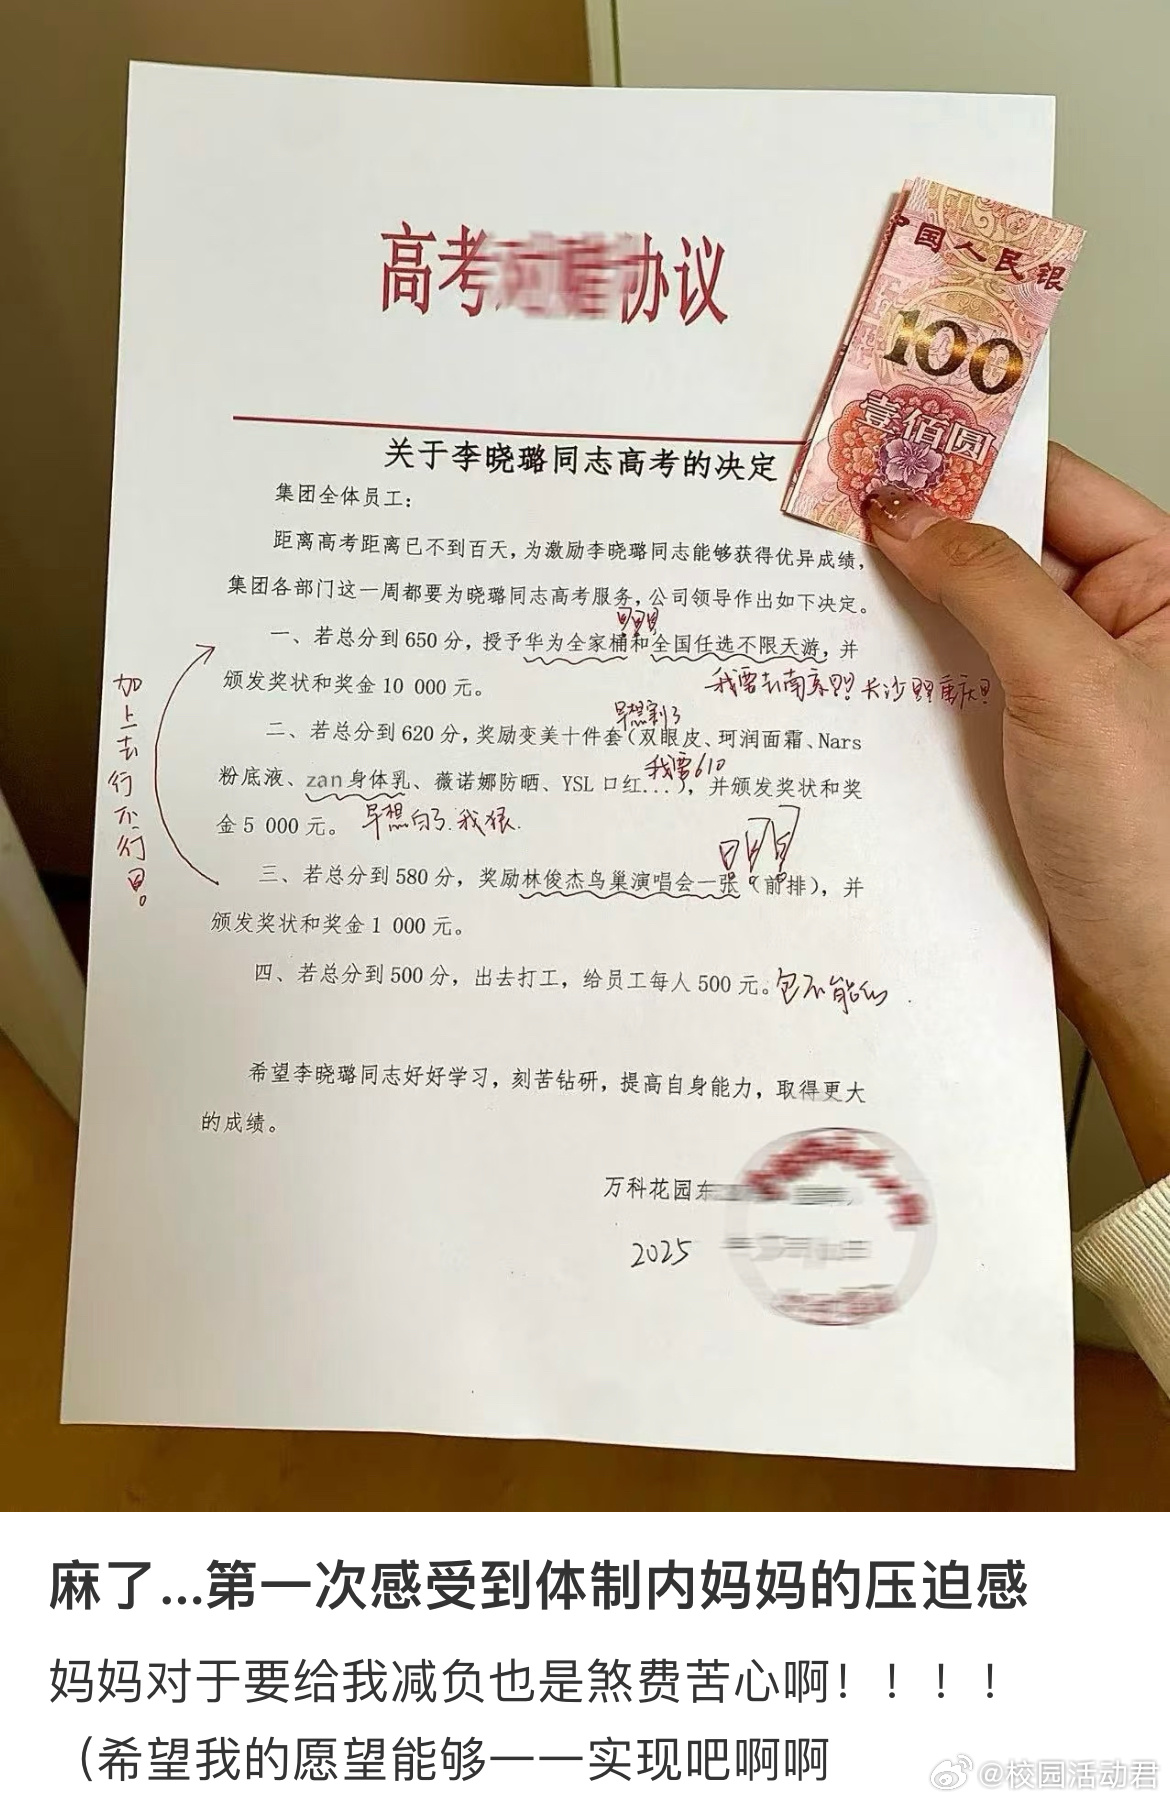 高考
协议
中国人民银
100
壹佰圆
关于李晓璐同志高考的决定
集团全体员工：
距离高考距离已不到百天，为激励李晓璐同志能够获得优异成绩，
集团各部门这一周都要为晓璐同志高考服务，公司领导作出如下决定。
一、若总分到650分，授予华为全家桶和全国任选不限天游，并
颁发奖状和奖金10 000元。
我要去南京!!! 长沙 重庆
早想割了
二、若总分到620分，奖励变美十件套（双眼皮、珂润面霜、Nars
粉底液、zan身体乳、薇诺娜防晒、YSL口红...），并颁发奖状和奖
我要610
金5 000元。
早想白了.我狠.
三、若总分到580分，奖励林俊杰鸟巢演唱会一张（前排），并
颁发奖状和奖金1 000元。
加上去行不行
四、若总分到500分，出去打工，给员工每人500元。
包不能的
希望李晓璐同志好好学习，刻苦钻研，提高自身能力，取得更大
的成绩。
万科花园东
2025
麻了...第一次感受到体制内妈妈的压迫感
妈妈对于要给我减负也是煞费苦心啊！！！！
（希望我的愿望能够一一实现吧啊啊
@校园活动君